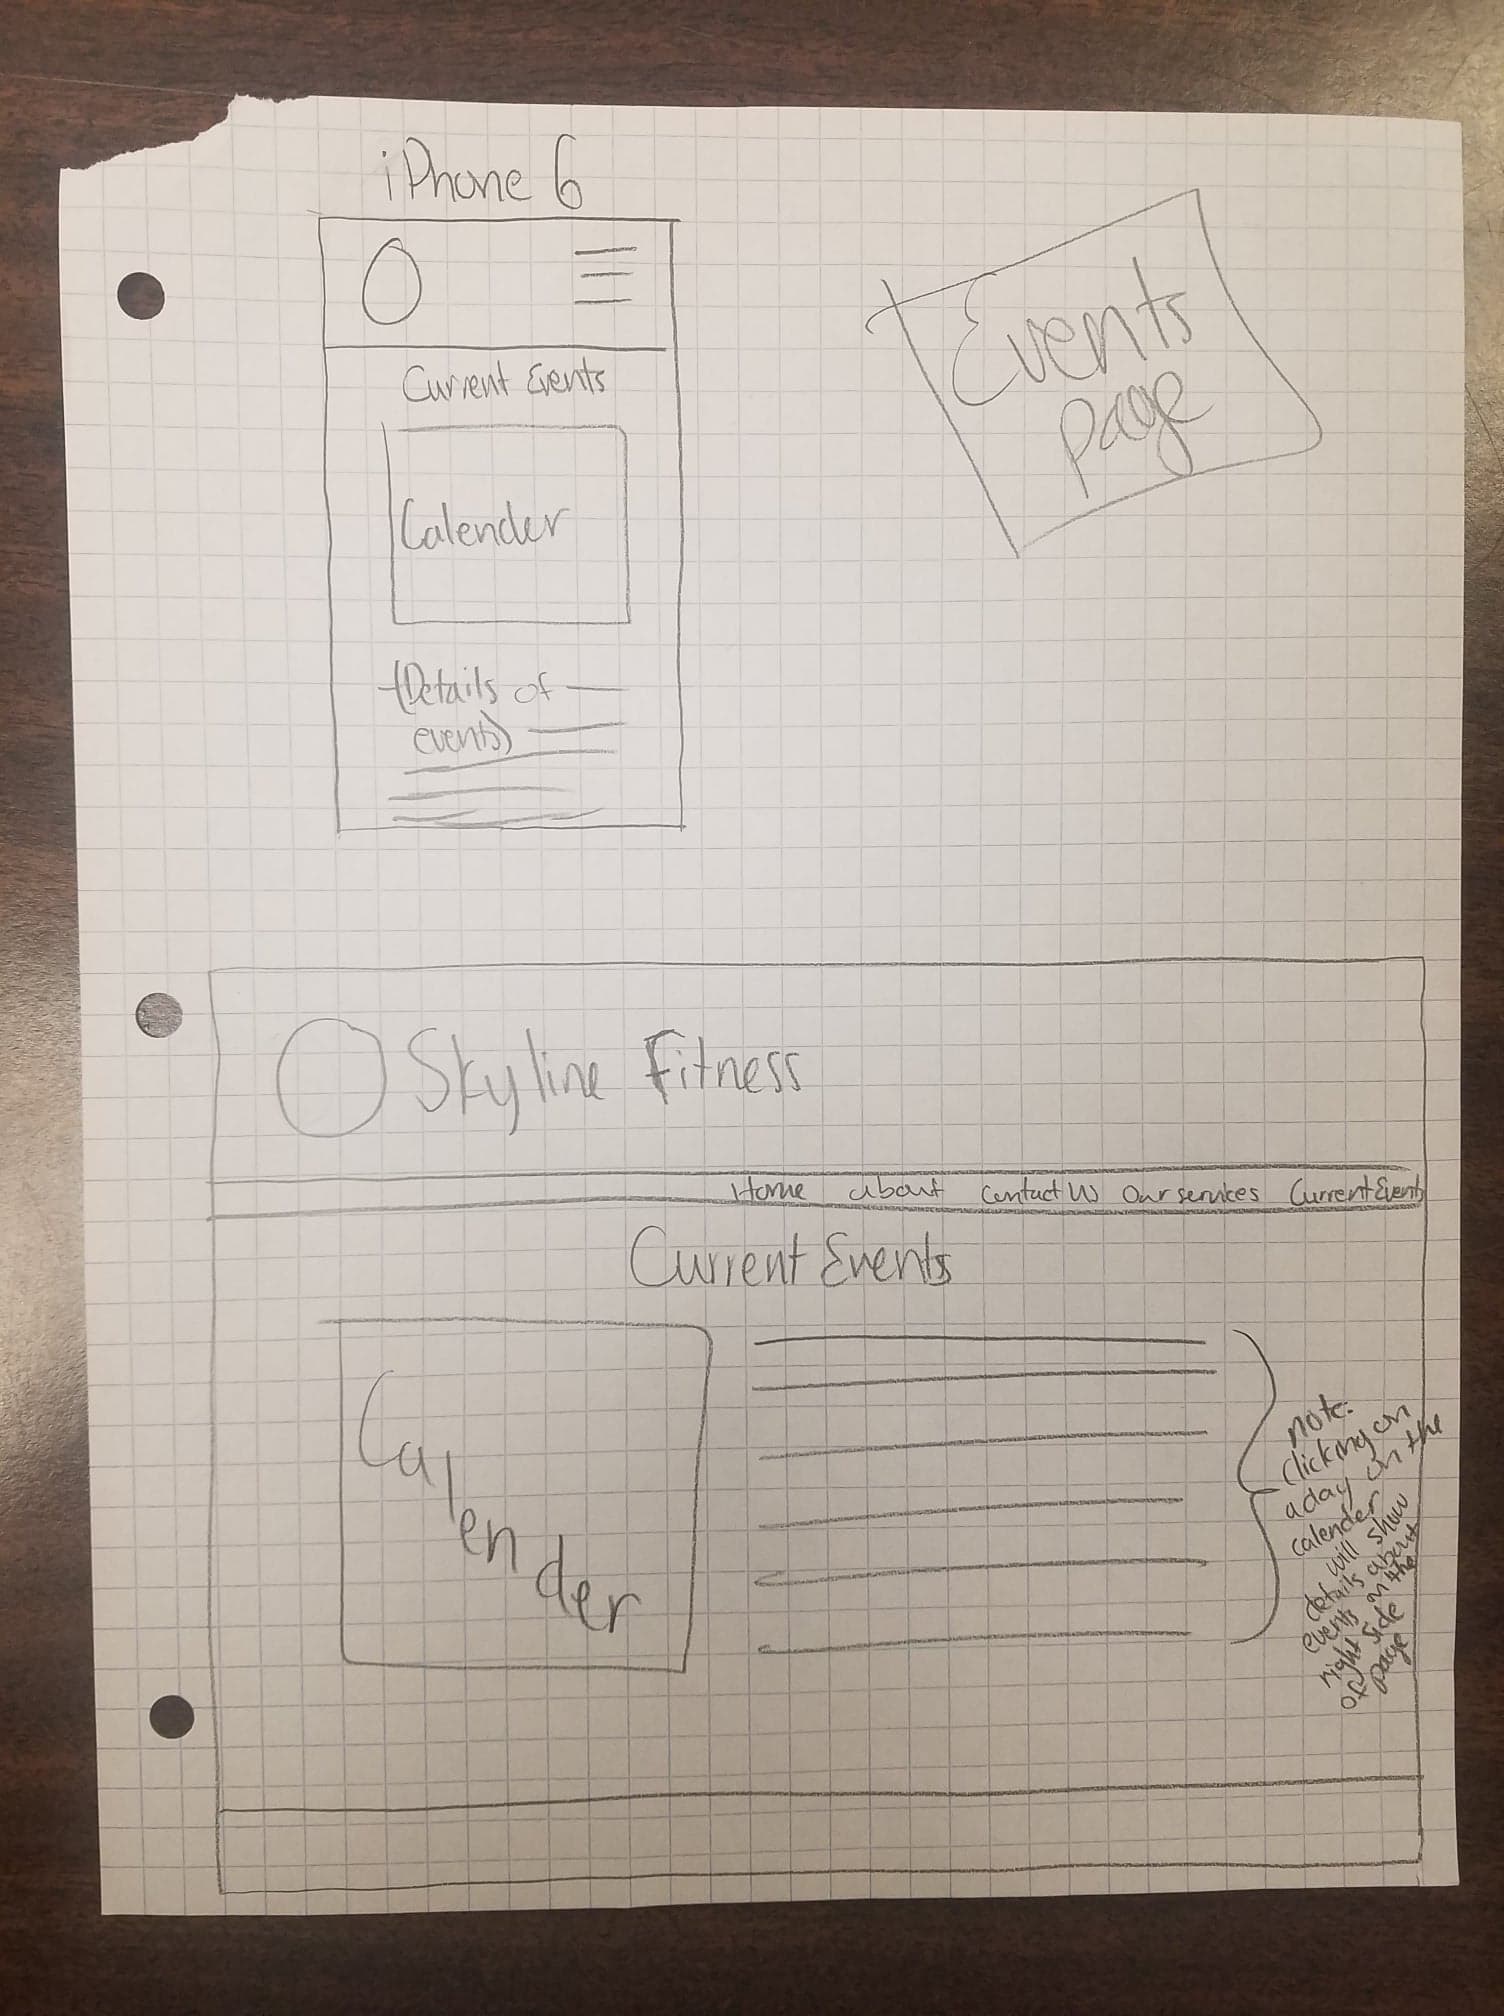 iPhone 6
Current Events
Calender
(Details of
events)
Events
page
Skyline Fitness
Home about Contact Us Our services Current Events
Current Events
Calender
note:
clicking on
a day on the
calender
will show
details about
events on the
right side
of page